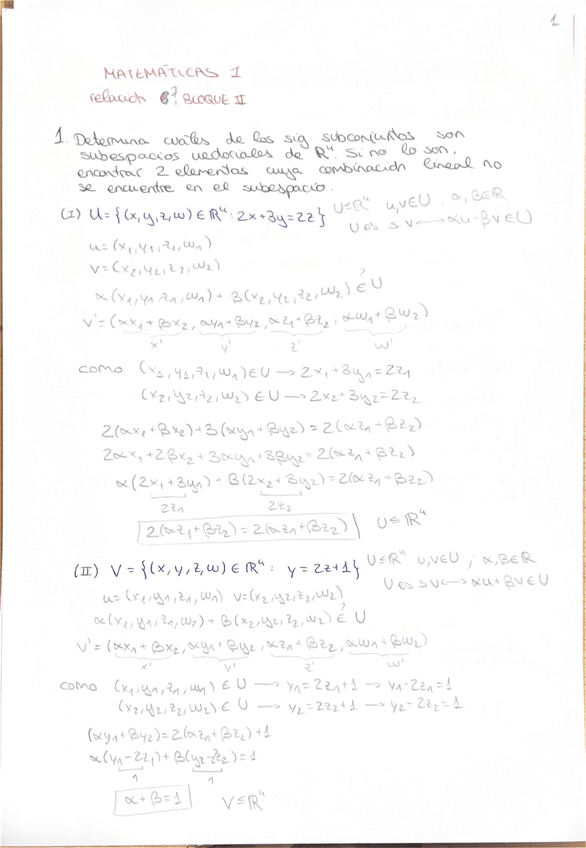 1
MATEMÁTICAS I
relación 6: BLOQUE II
1. Determina cuáles de los sig. subconjuntos son
subespacios vectoriales de ℝ⁴. Si no lo son,
encontrar 2 elementos cuya combinación lineal no
se encuentre en el subespacio.
(I) U = {(x,y,z,w) ∈ ℝ⁴ : 2x+3y=2z} U≤ℝ⁴ u,v∈U, α,β∈ℝ
U es s.v ⟷ αu+βv∈U
u=(x₁,y₁,z₁,w₁)
v=(x₂,y₂,z₂,w₂)
α(x₁,y₁,z₁,w₁) + β(x₂,y₂,z₂,w₂) ∈? U
v'=(αx₁+βx₂, αy₁+βy₂, αz₁+βz₂, αw₁+βw₂)
x' y' z' w'
como (x₁,y₁,z₁,w₁)∈U → 2x₁+3y₁=2z₁
(x₂,y₂,z₂,w₂)∈U → 2x₂+3y₂=2z₂
2(αx₁+βx₂)+3(αy₁+βy₂)=2(αz₁+βz₂)
2αx₁+2βx₂+3αy₁+3βy₂=2(αz₁+βz₂)
α(2x₁+3y₁)+β(2x₂+3y₂)=2(αz₁+βz₂)
2z₁ 2z₂
2(αz₁+βz₂)=2(αz₁+βz₂) U≤ℝ⁴
(II) V = {(x,y,z,w) ∈ ℝ⁴ : y=2z+1} U≤ℝ⁴ u,v∈U, α,β∈ℝ
U es s.v ⟷ αu+βv∈U
u=(x₁,y₁,z₁,w₁) v=(x₂,y₂,z₂,w₂)
α(x₁,y₁,z₁,w₁) + β(x₂,y₂,z₂,w₂) ∈? U
v'=(αx₁+βx₂, αy₁+βy₂, αz₁+βz₂, αw₁+βw₂)
x' y' z' w'
como (x₁,y₁,z₁,w₁) ∈ U → y₁=2z₁+1 → y₁-2z₁=1
(x₂,y₂,z₂,w₂) ∈ U → y₂=2z₂+1 → y₂-2z₂=1
(αy₁+βy₂)=2(αz₁+βz₂)+1
α(y₁-2z₁)+β(y₂-2z₂)=1
1 1
α+β=1 V≤ℝ⁴